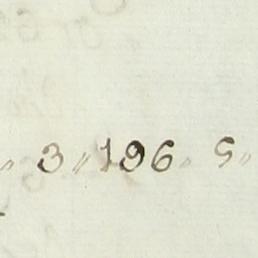 〃 3 〃 196 〃 5 〃